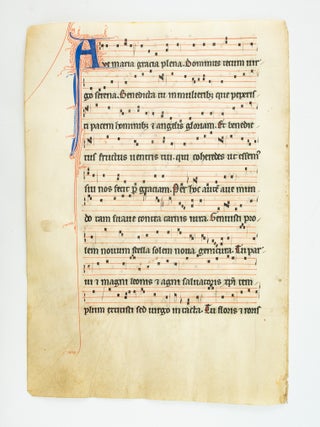 Ave maria gracia plena. Dominus tecum uir
go serena. Benedicta tu in mulieribz que peperis
ti pacem hominibz et angelis gloriam. Et benedic
tus fructus uentris tui. qui coheredes ut essem
sui nos fecit p graciam. Per hoc aute aue mun
do tam suaue contra carnis iura. Genuisti pro
lem nouum stella solem noua genitura. Tu par
ui et magni leonis et agni saluatoris xpi tem
plum extitisti sed uirgo intacta. Tu floris et roris